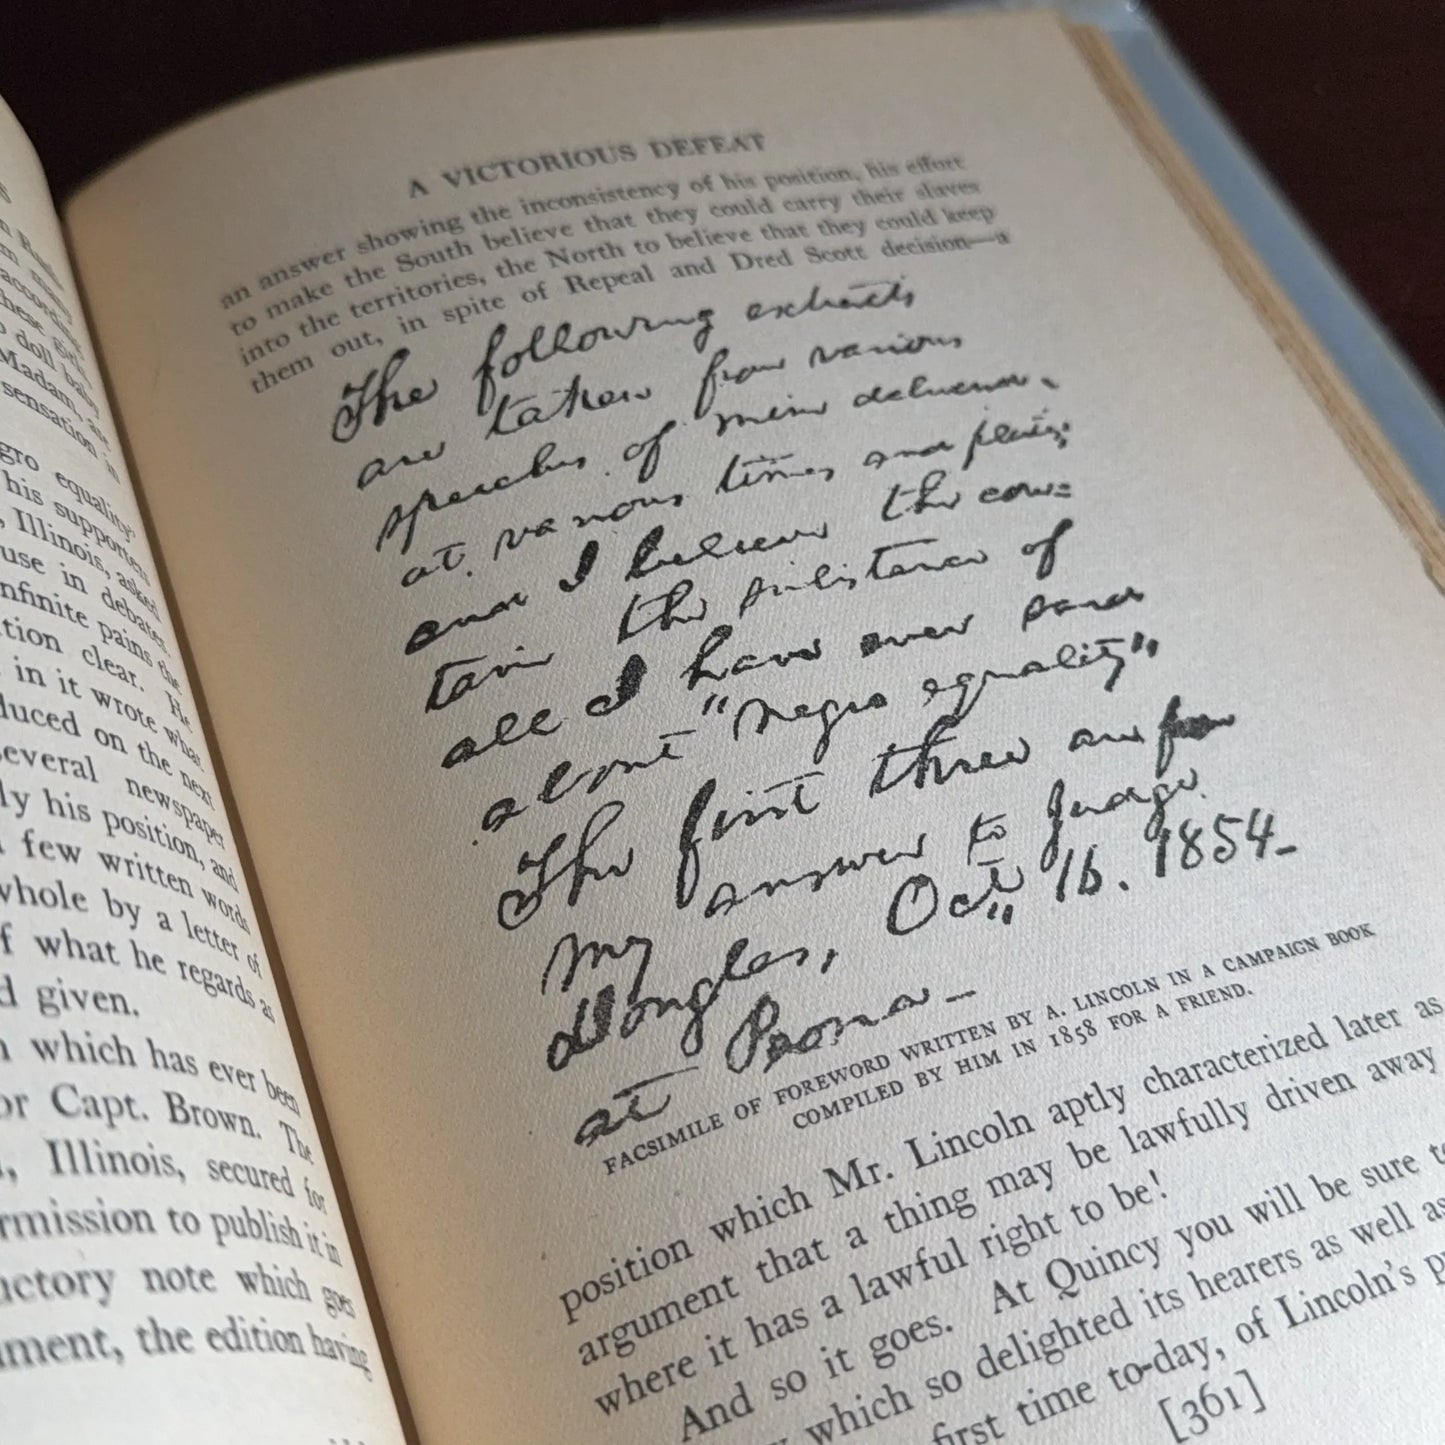 S
doll baby
Madam, are
sensation in
gro equality"
his supporters
, Illinois, asked
use in debates.
nfinite pains the
tion clear. He
in it wrote what
duced on the next
several newspaper
ly his position, and
few written words
whole by a letter of
f what he regards as
d given.
n which has ever been
or Capt. Brown. The
, Illinois, secured for
rmission to publish it in
uctory note which goes
ument, the edition having
A VICTORIOUS DEFEAT
an answer showing the inconsistency of his position, his effort
to make the South believe that they could carry their slaves
into the territories, the North to believe that they could keep
them out, in spite of Repeal and Dred Scott decision—a
The following extracts
are taken from various
speeches of mine delivered
at various times and places;
and I believe they con=
tain the substance of
all I have ever said
about "negro equality"
The first three are from
my answer to Judge
Douglas, Oct. 16. 1854—
at Peoria—
FACSIMILE OF FOREWORD WRITTEN BY A. LINCOLN IN A CAMPAIGN BOOK
COMPILED BY HIM IN 1858 FOR A FRIEND.
position which Mr. Lincoln aptly characterized later as
argument that a thing may be lawfully driven away
where it has a lawful right to be!
And so it goes. At Quincy you will be sure to
which so delighted its hearers as well as
first time to-day, of Lincoln's p
[361]